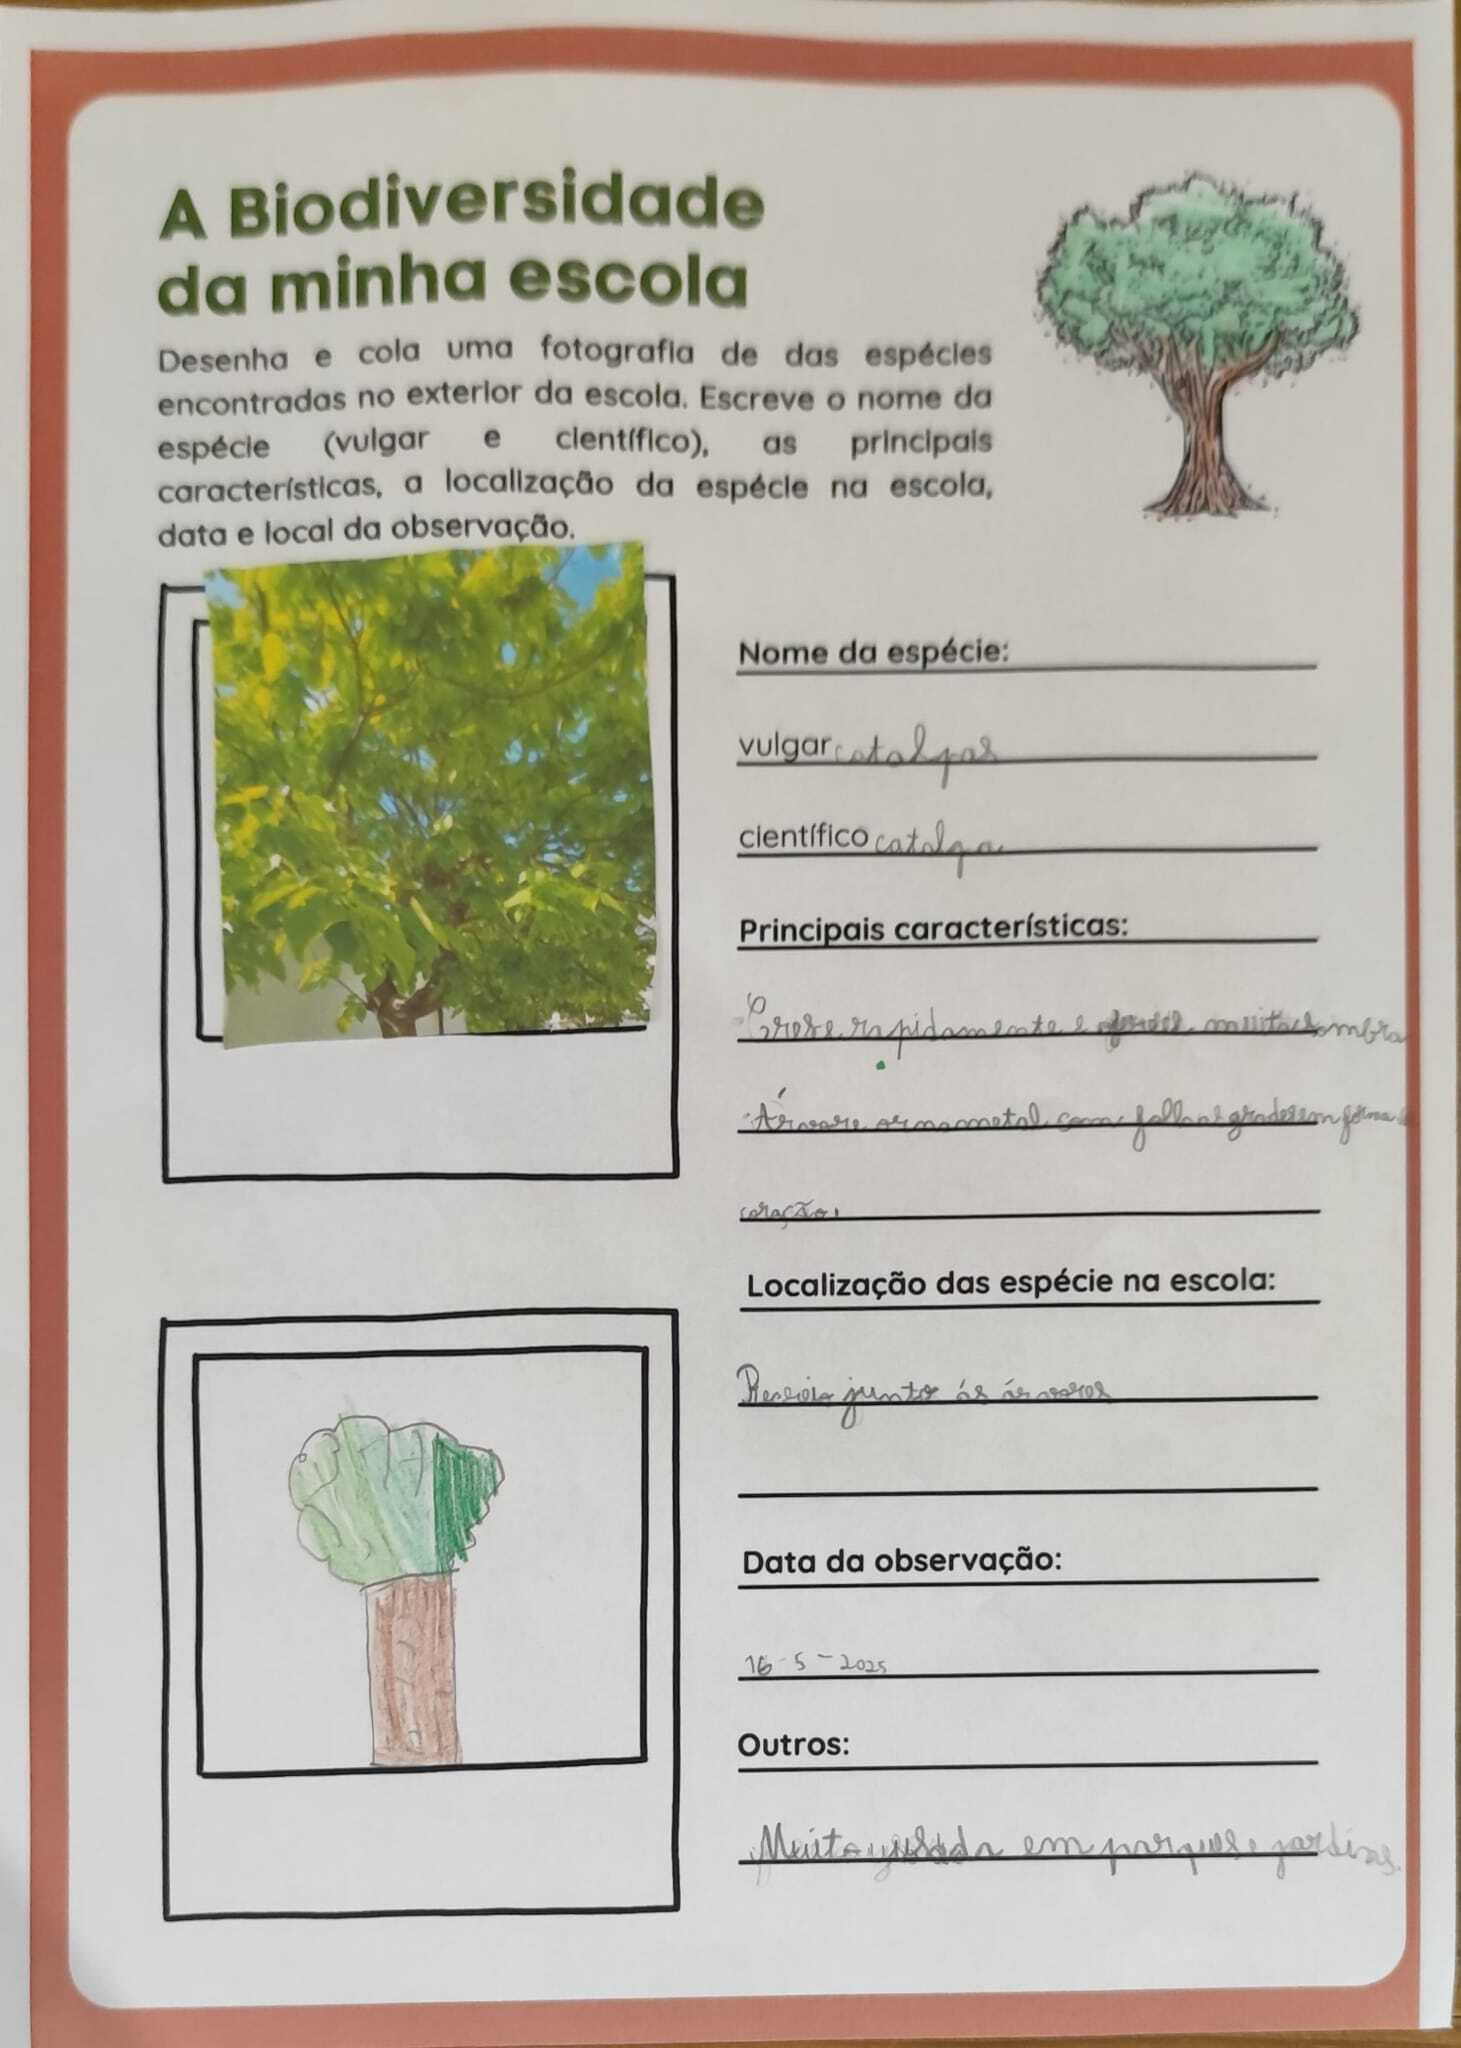 A Biodiversidade
da minha escola
Desenha e cola uma fotografia de das espécies
encontradas no exterior da escola. Escreve o nome da
espécie (vulgar e científico), as principais
características, a localização da espécie na escola,
data e local da observação.
Nome da espécie:
vulgar catalpas
científico catalpa
Principais características:
Crese rapidamente e muita sombra
Árvore ornametal com folhas grades em forma de
coração.
Localização das espécie na escola:
Recreio junto ás árvores
Data da observação:
16-5-2025
Outros:
Muito usada em parques e jardins.